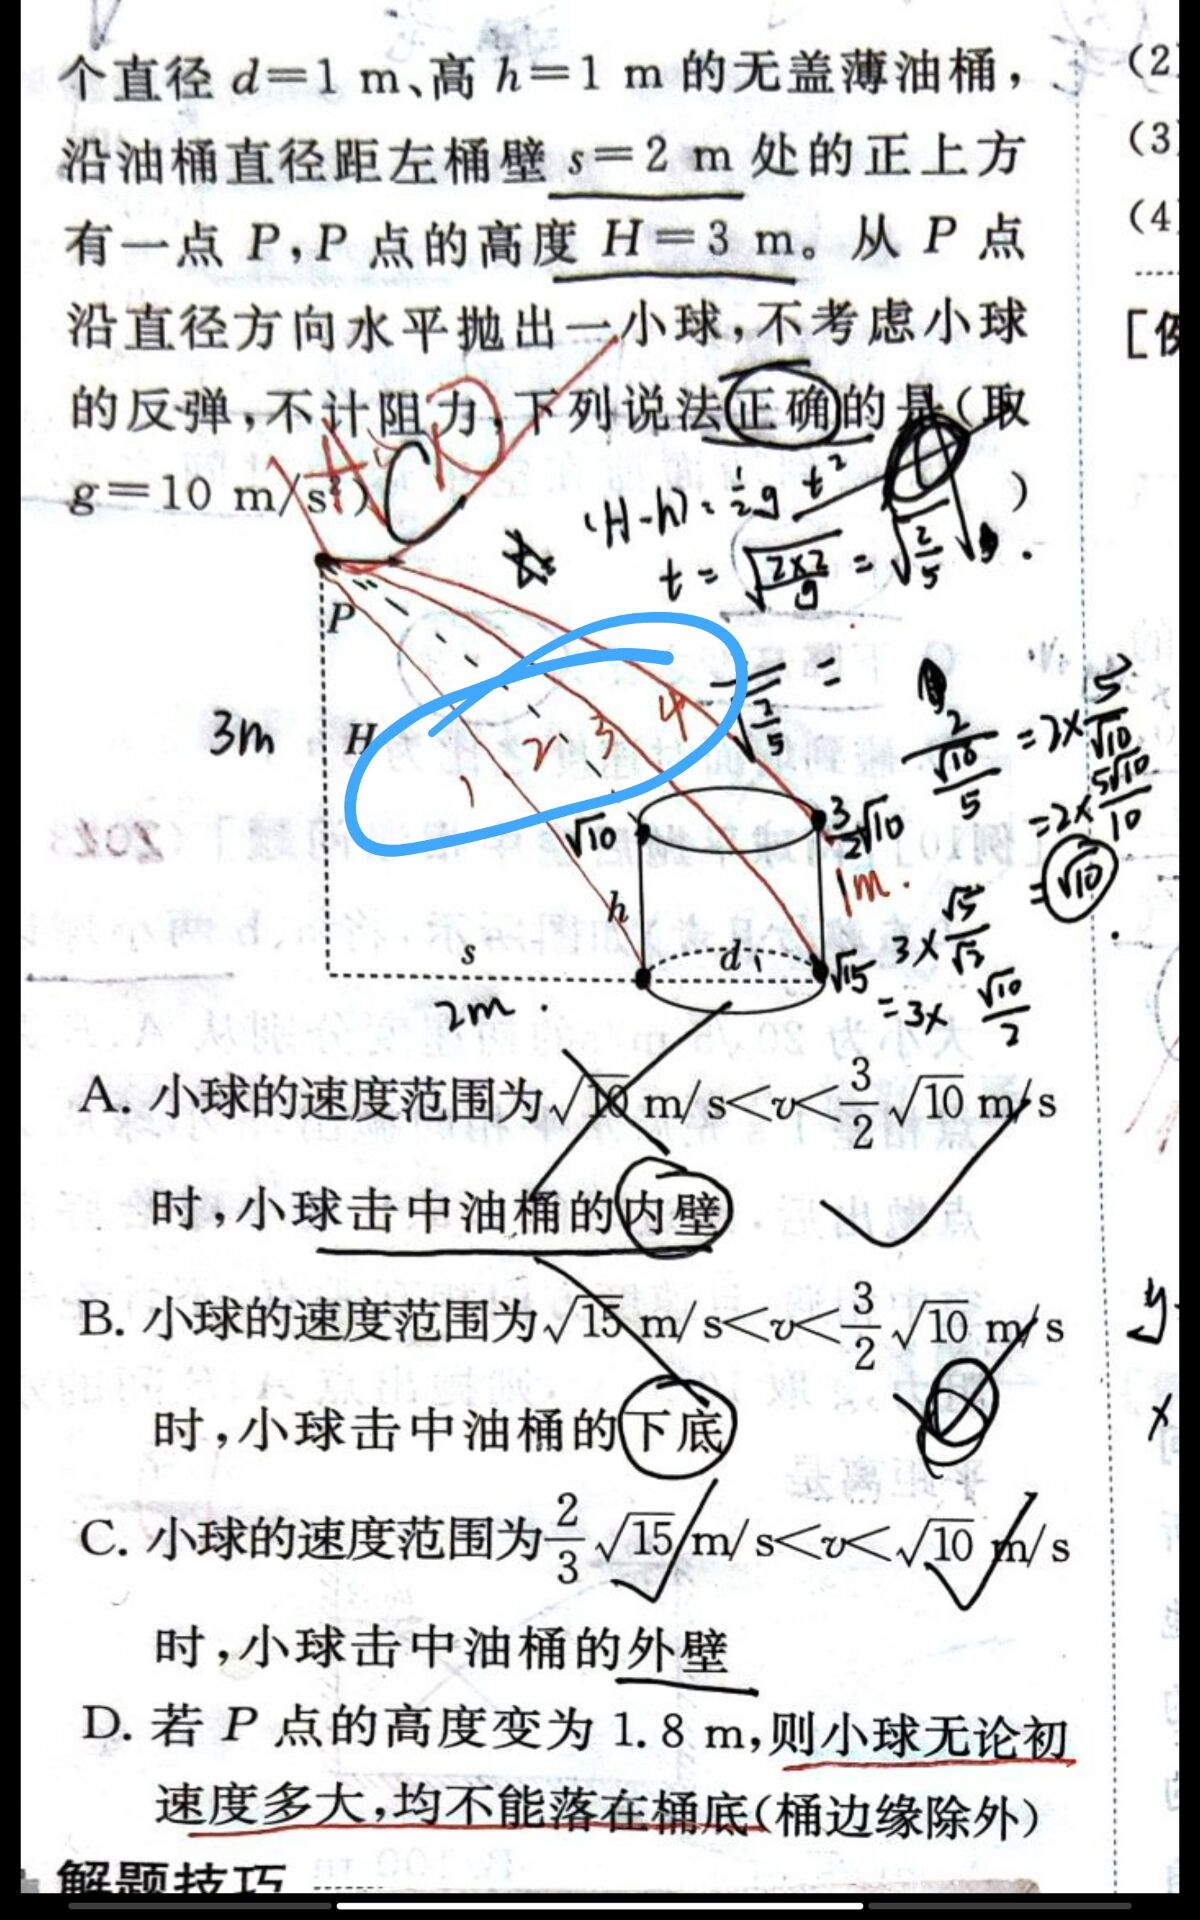 个直径 d=1 m、高 h=1 m 的无盖薄油桶，
(2
沿油桶直径距左桶壁 s=2 m 处的正上方
(3
有一点 P，P 点的高度 H=3 m。从 P 点
(4
沿直径方向水平抛出一小球，不考虑小球
的反弹，不计阻力，下列说法正确的是(取
g=10 m/s²)
)
(H-h)=½gt²
t=√(2×2/g)=√(2/5)
P
3m
H
1
2
3
4
√10
3/2√10
1m.
h
s
d
√15
2m.
2/(√10/5)=2×5/√10
=2×5√10/10
=√10
3×√5/√2
=3×√10/2
A. 小球的速度范围为√10 m/s<v<3/2√10 m/s
时，小球击中油桶的内壁
B. 小球的速度范围为√15 m/s<v<3/2√10 m/s
时，小球击中油桶的下底
C. 小球的速度范围为2/3√15 m/s<v<√10 m/s
时，小球击中油桶的外壁
D. 若 P 点的高度变为 1.8 m，则小球无论初
速度多大，均不能落在桶底(桶边缘除外)
解题技巧